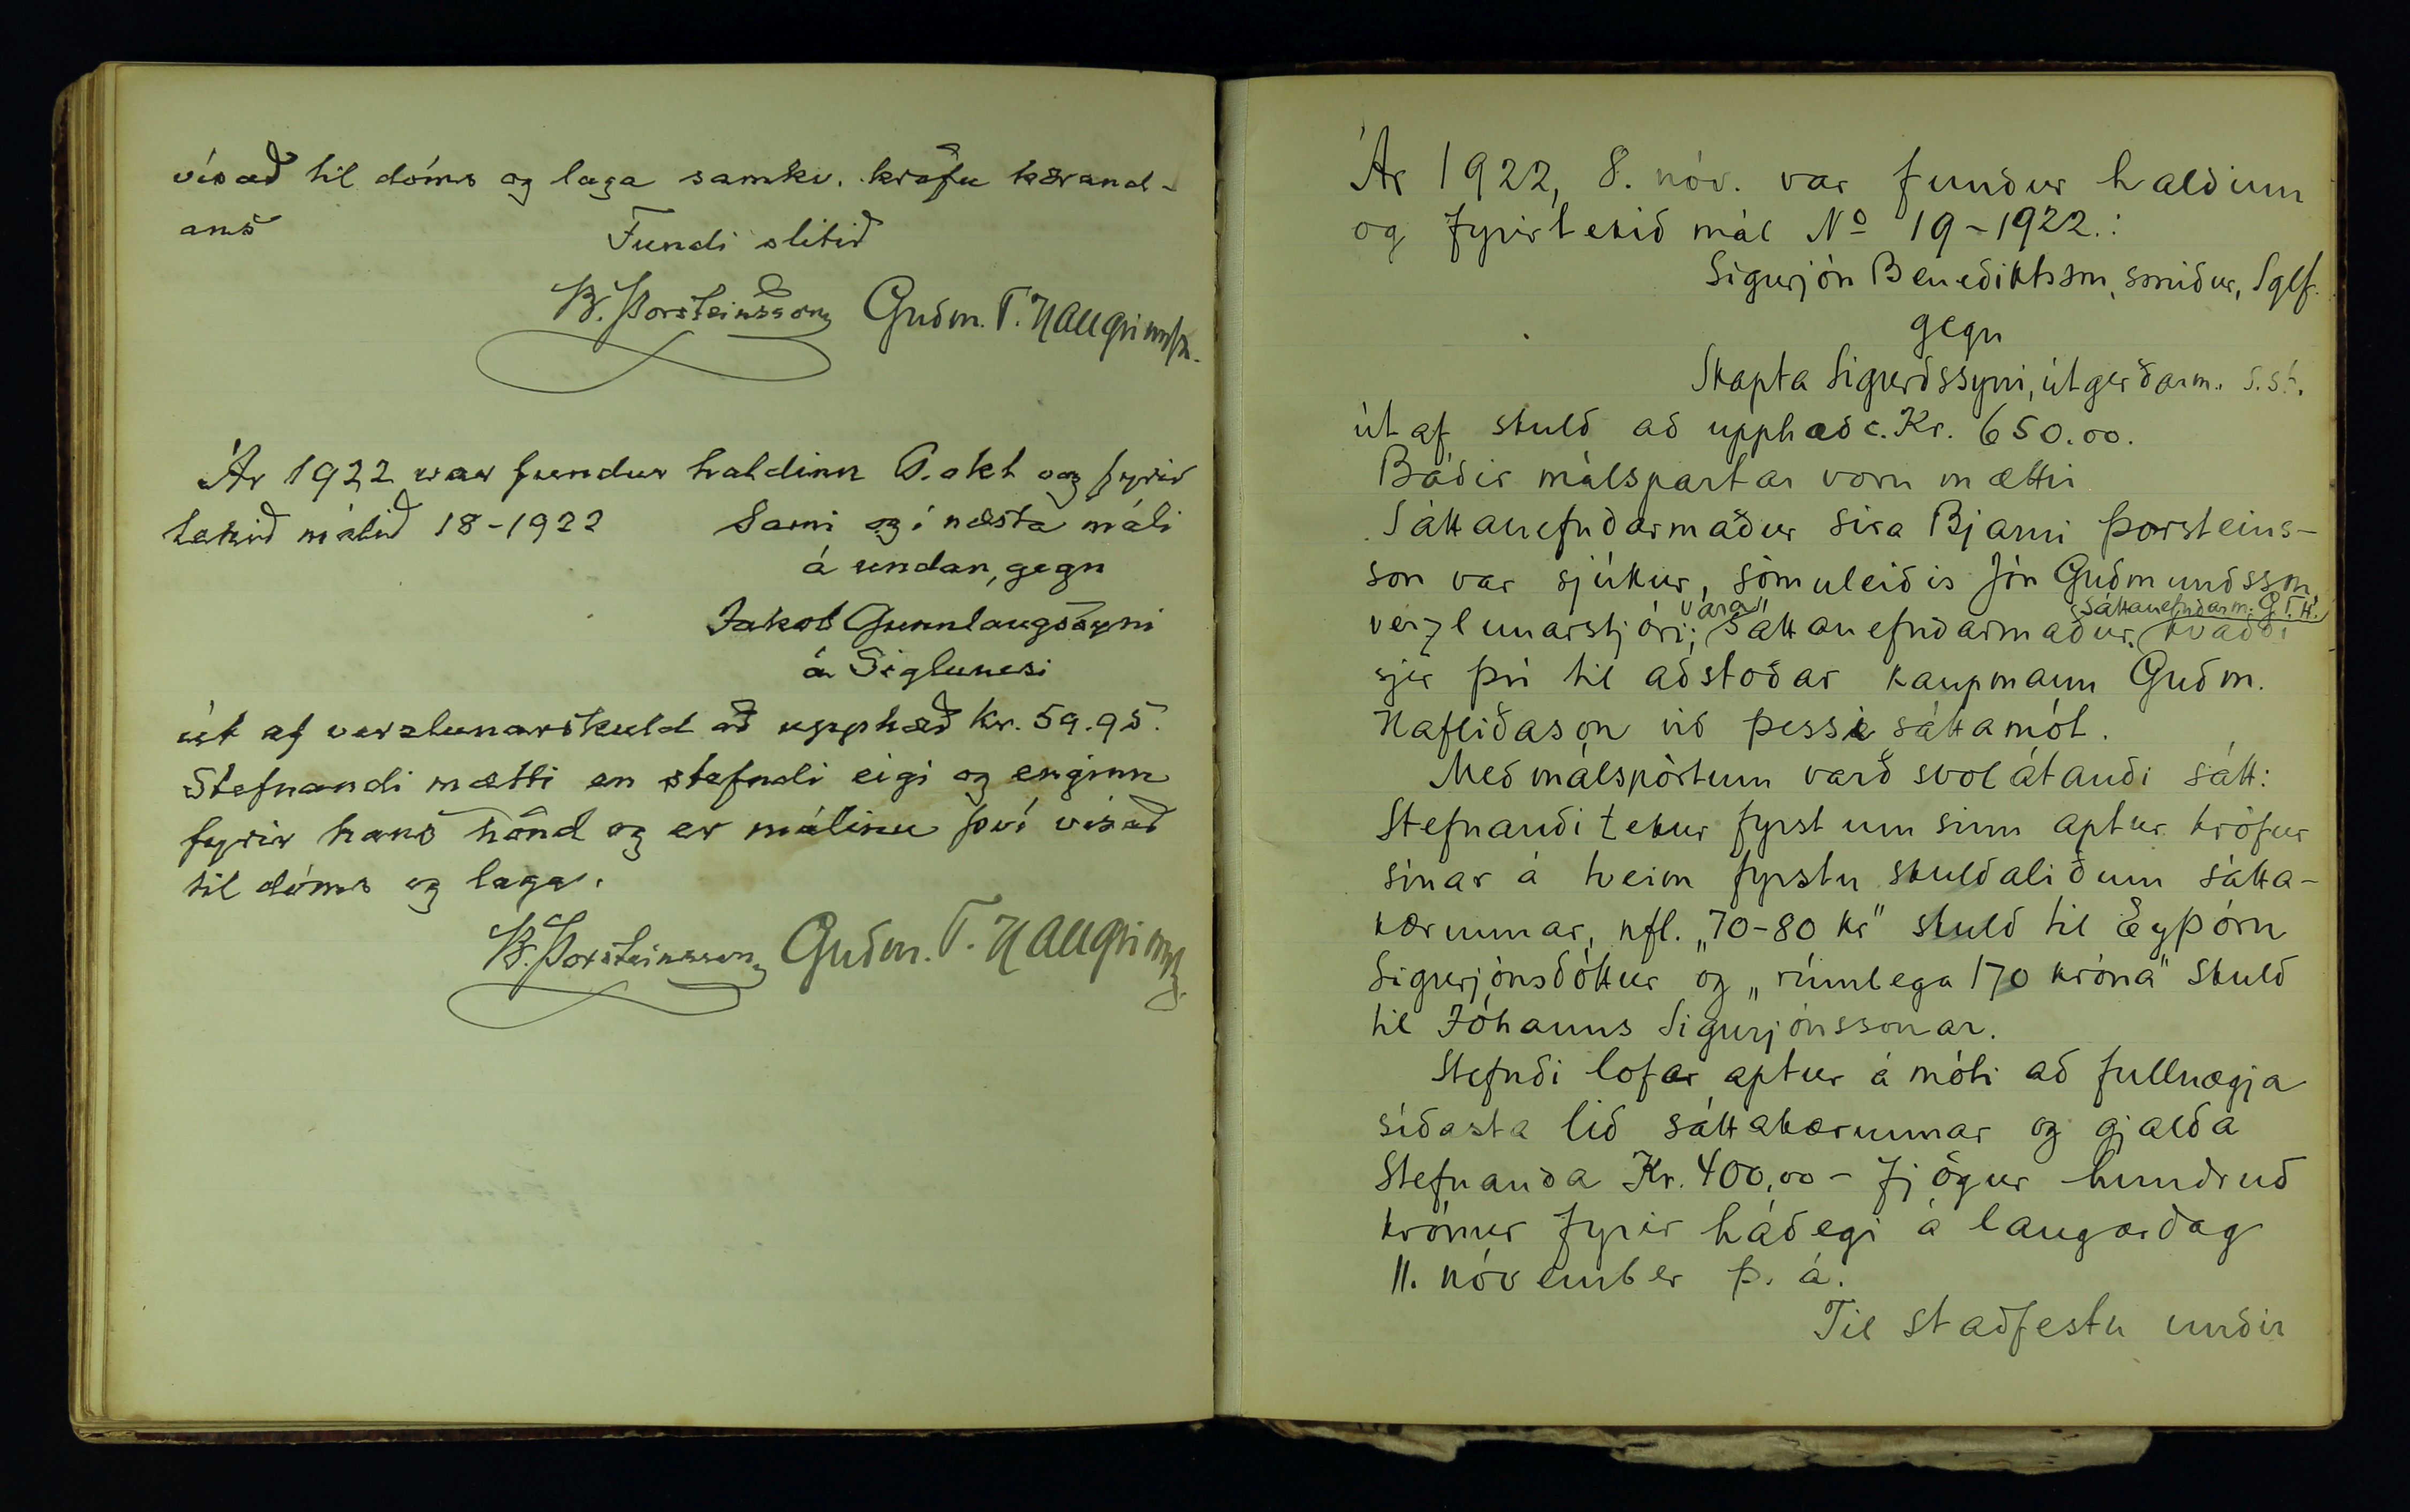 vísað til dóms og laga samkv. kröfu kærand-
ans
Fundi slitið
B. Þorsteinsson Guðm. T. Hallgrímss.
Ár 1922 var fundur haldinn 6. okt og fyrir
tekið málið 18-1922 Sami og í næsta máli
á undan, gegn
Jakob Gunnlaugssyni
á Siglunesi
út af verzlunarskuld að upphæð kr. 59.95.
Stefnandi mætti en stefndi eigi og enginn
fyrir hans hönd og er málinu því vísað
til dóms og laga.
B. Þorsteinsson Guðm. T. Hallgrímss.
Ár 1922, 8. nóv. var fundur haldinn
og fyrirtekið mál No 19-1922.:
Sigurjón Benediktsson, smiður, Sglf.
gegn
Skapta Sigurðssyni, útgerðarm. s.st.
út af skuld að upphæð c. Kr. 650.00.
Báðir málspartar voru mættir
Sáttanefndarmaður síra Bjarni Þorsteins-
son var sjúkur, sömuleiðis Jón Guðmundsson,
verzlunarstjóri; "vara" sáttanefndarmaður. Sáttanefndarm. G.T.H. kvaddi
sjer því til aðstoðar kaupmann Guðm.
Hafliðason við þessi sáttamót.
Með málspörtum varð svolátandi sátt:
Stefnandi tekur fyrst um sinn aptur kröfur
sínar á tveim fyrstu skuldaliðum sátta-
kærunnar, nfl. „70-80 kr" skuld til Eyþóru
Sigurjónsdóttur og „rúmlega 170 króna" skuld
til Jóhanns Sigurjónssonar.
Stefndi lofar aptur á móti að fullnægja
síðasta lið sáttakærunnar og gjalda
Stefnanda Kr. 400,00 - fjögur hundruð
krónur fyrir hádegi á laugardag
11. nóvember þ. á.
Til staðfestu undir